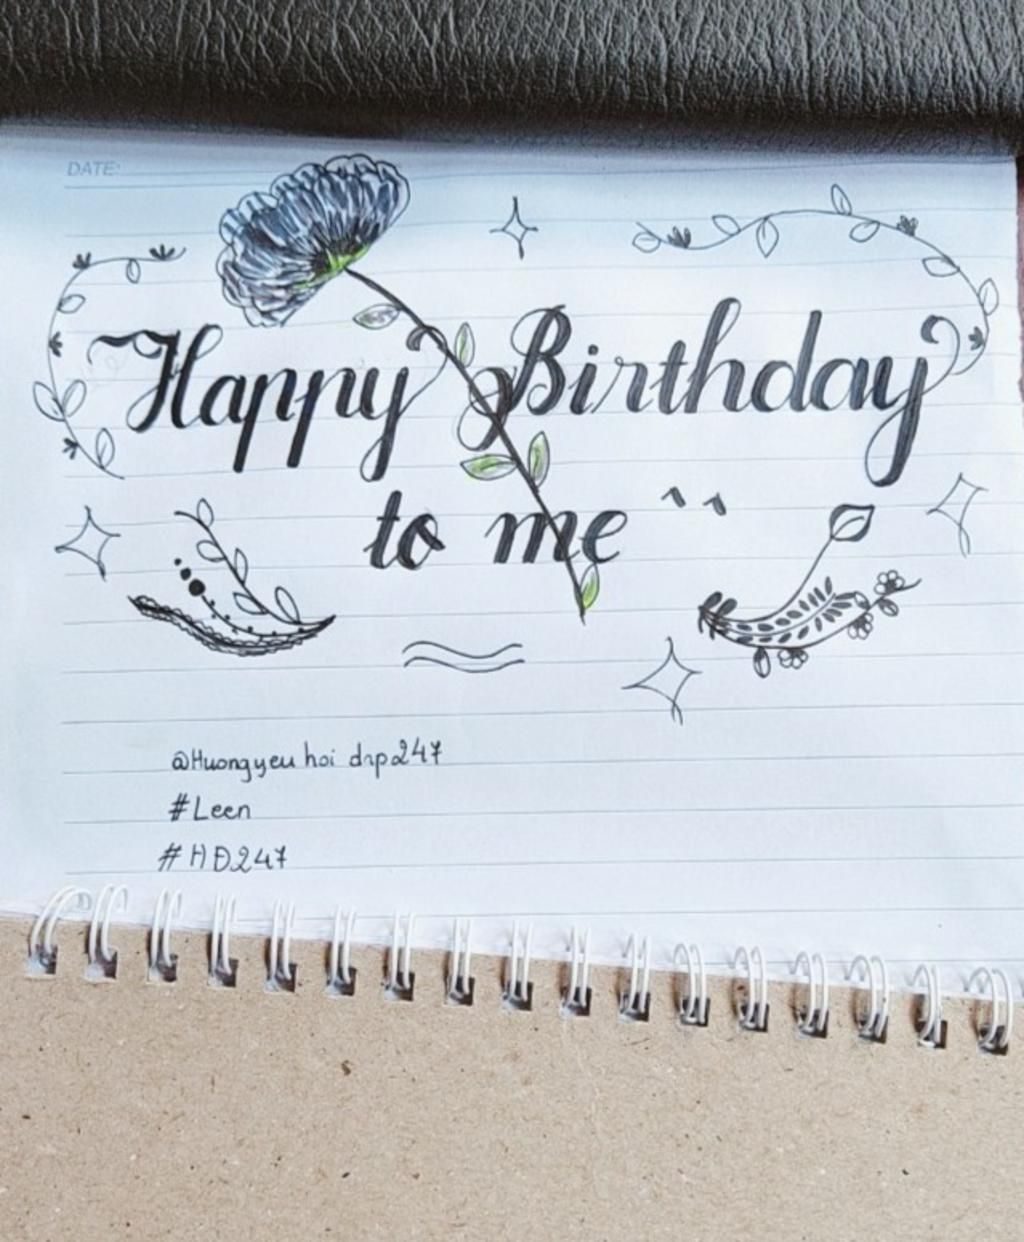 DATE:
Happy Birthday
to me ^^
@Huongyeu hoi drp247
#Leen
#HĐ247